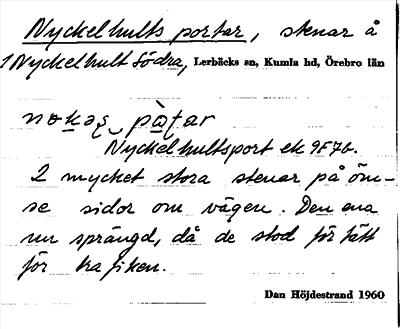 Nyckelhults portar, stenar å
1 Nyckelhult Södra, Lerbäcks sn, Kumla hd, Örebro län
Nyckelhultsport ek 9F7b.
2 mycket stora stenar på öm-
se sidor om vägen. Den ena
nu sprängd, då de stod för tätt
för trafiken.
Dan Höjdestrand 1960